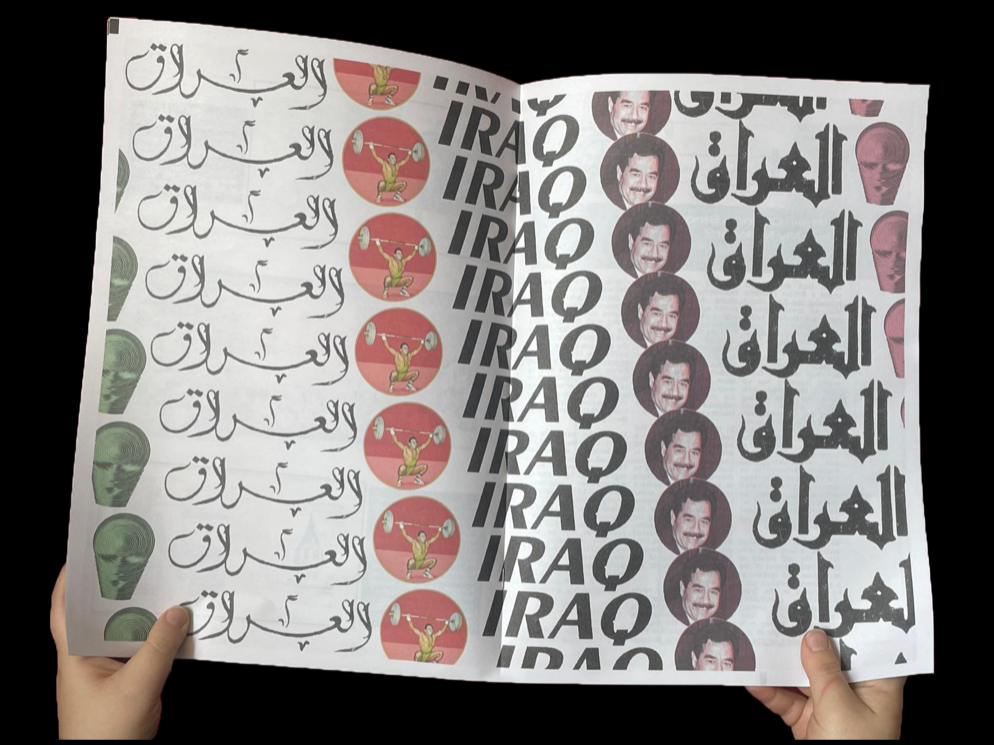 العراق
العراق
العراق
العراق
العراق
العراق
العراق
العراق
العراق
IRAQ
IRAQ
IRAQ
IRAQ
IRAQ
IRAQ
IRAQ
IRAQ
IRAQ
IRAQ
IRAQ
العراق
العراق
العراق
العراق
العراق
العراق
لعراق